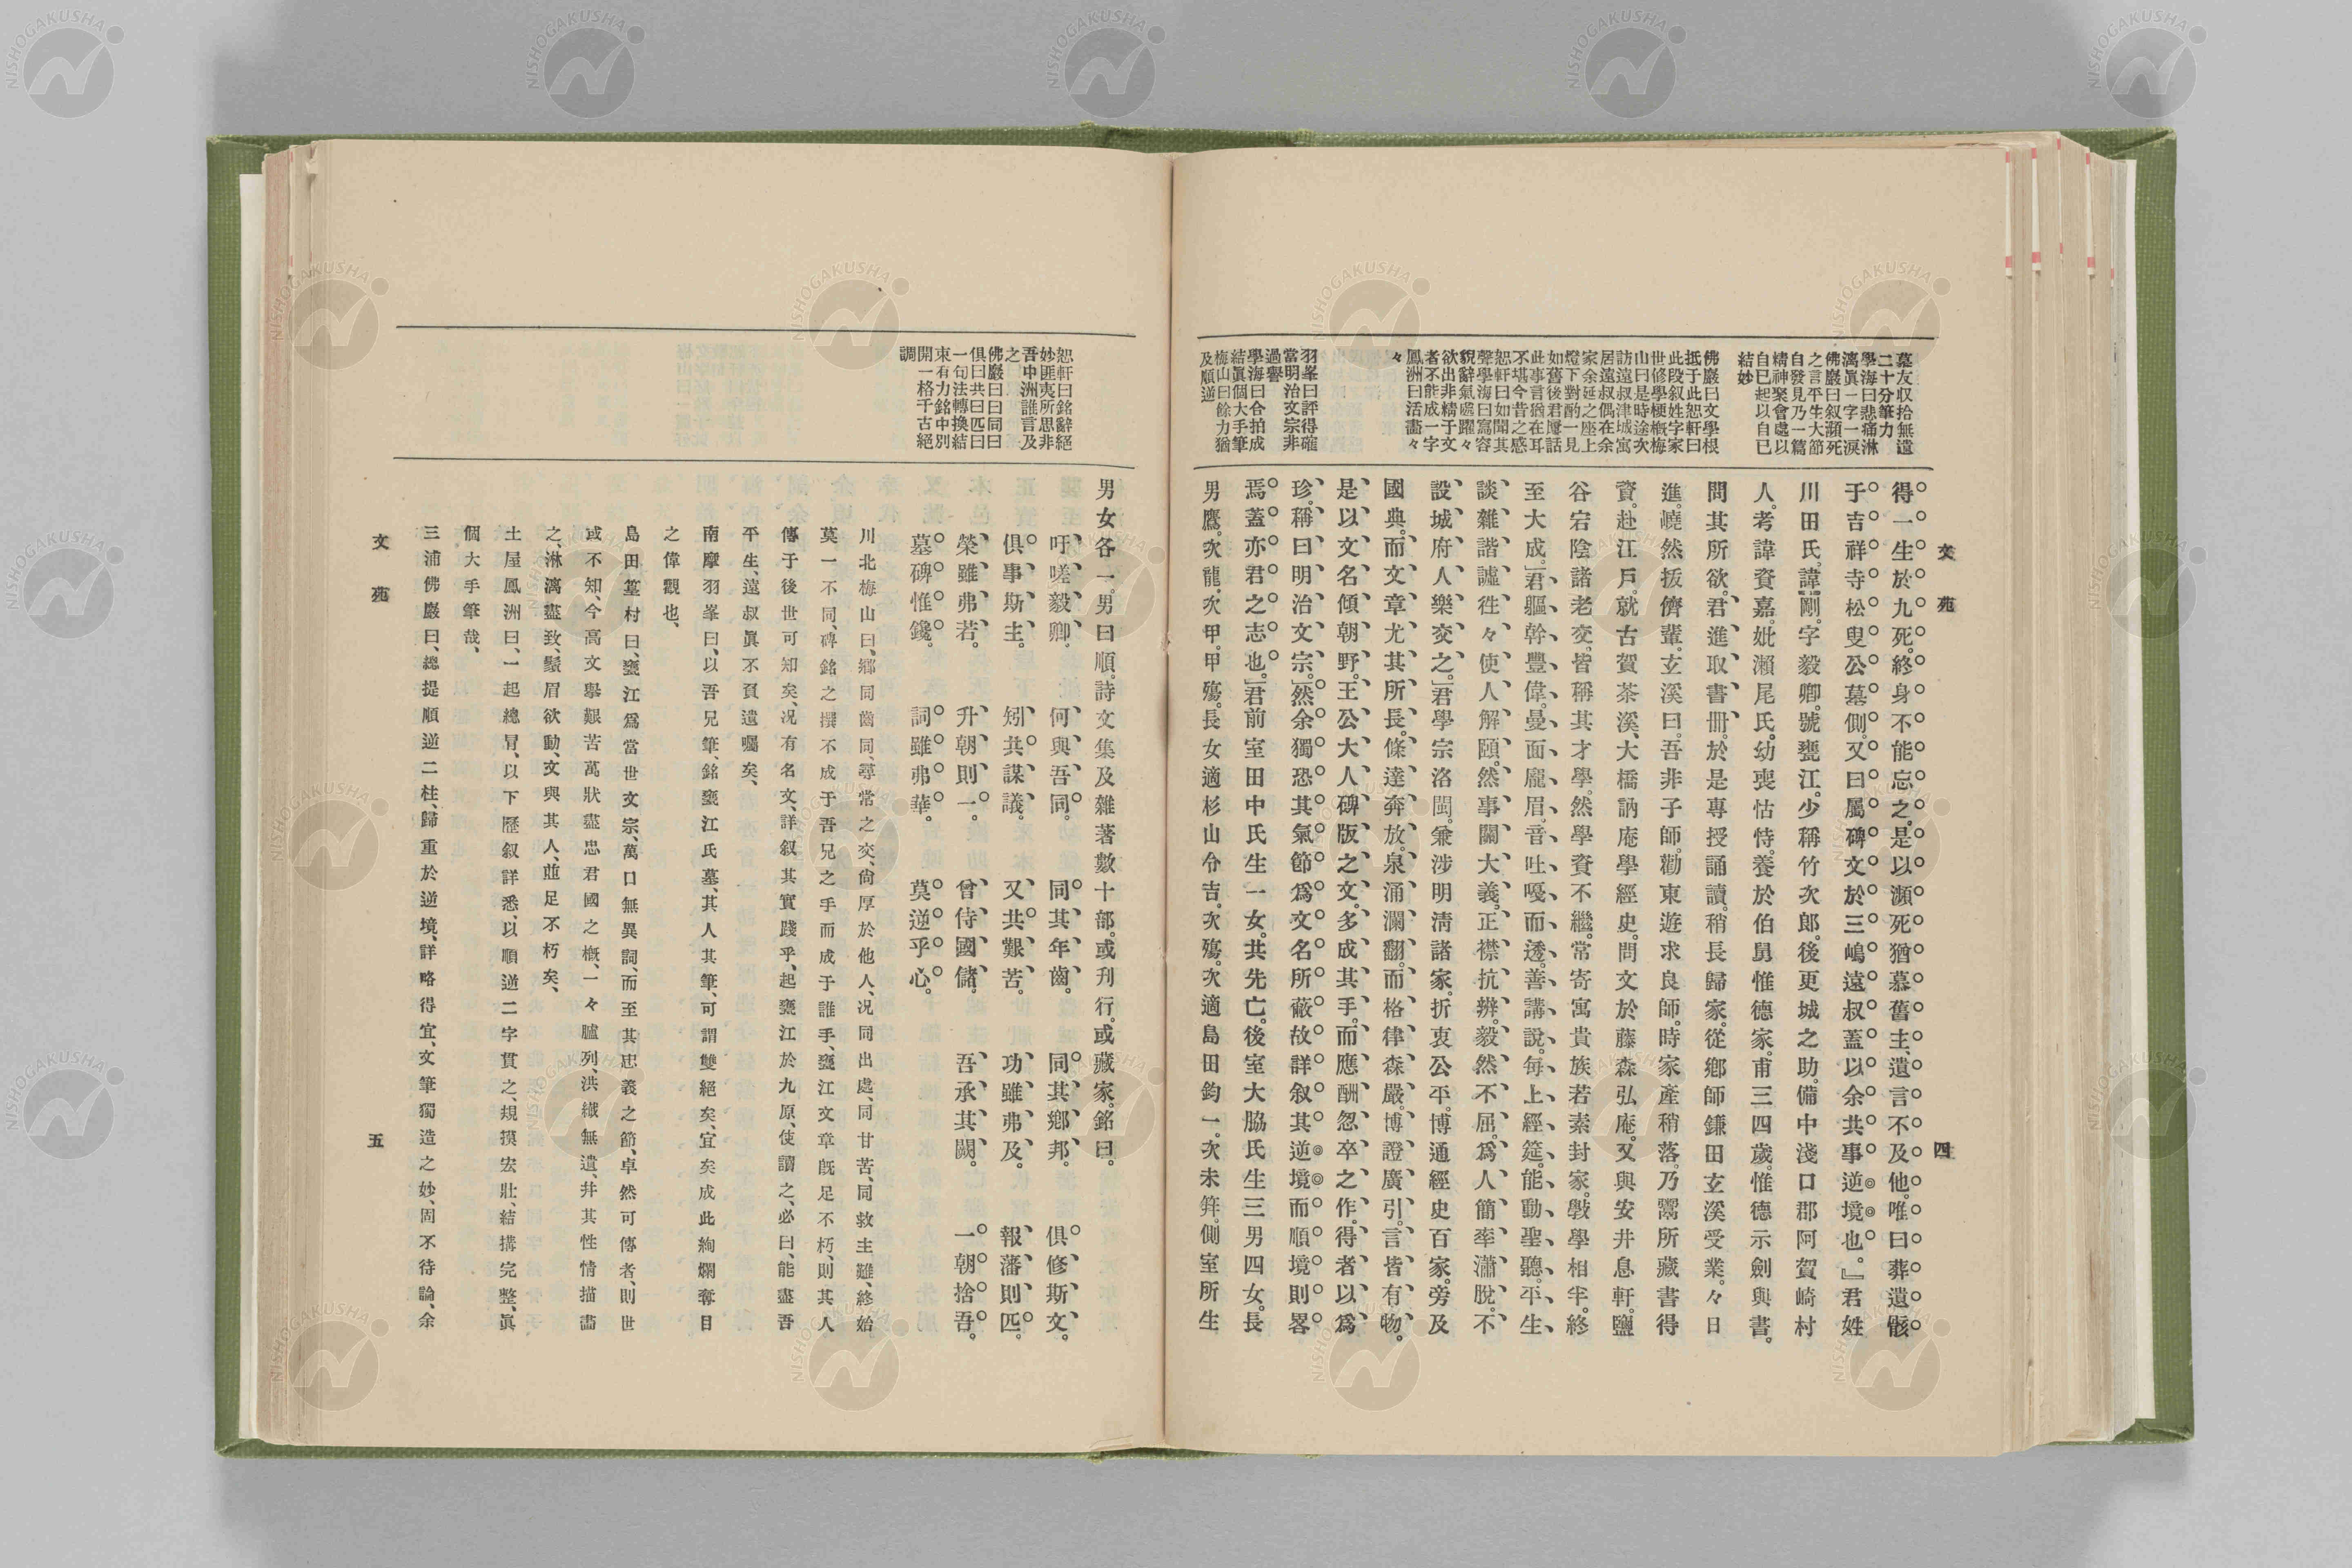 文苑
四
墓友収拾無遺
二十分筆力
學海曰悲痛淋
漓眞一字一涙
佛巖曰叙瀕死
之言平生大節
自發見乃一篇
精神聚會處以
自已起以自已
結妙
佛巖曰文學根
抵于此恕軒曰
此段叙姓字家
世修學梗概梅
山曰是時途次
訪遠叔津城寓
居遠叔偶在余
家余延之座上
燈下對酌一見
如舊後君屢話
此事言猶在耳
不堪今昔之感
恕軒曰如聞其
聲學海曰寫容
貎辭氣處躍々
欲出非精于文
者不能成一字
鳳洲曰活畵々
々
羽峯曰評得確
當明治文宗非
過譽
學海曰合拍成
結眞個大手筆
梅山曰餘力猶
及順逆
得一生於九死。終身不能忘之。是以瀕死猶慕舊主、遺言不及他。唯曰葬遺骸
于吉祥寺松叟公墓側。又曰屬碑文於三嶋遠叔蓋以余共事逆境也。』君姓
川田氏。諱剛。字毅卿。號甕江。少稱竹次郎。後更城之助。備中淺口郡阿賀崎村
人。考諱資嘉。妣瀨尾氏。幼喪怙恃。養於伯舅惟德家。甫三四歲。惟德示劍與書。
問其所欲。君進取書冊。於是專授誦讀。稍長歸家。從鄕師鎌田玄溪受業。々日
進。嶢然拔儕輩。玄溪曰。吾非子師。勸東遊求良師。時家產稍落。乃鬻所藏書得
資。赴江戶。就古賀茶溪、大橋訥庵學經史。問文於藤森弘庵。又與安井息軒。鹽
谷宕陰諸老交。皆稱其才學。然學資不繼。常寄寓貴族若素封家。斅學相半。終
至大成。」君軀幹豐偉。曼面龐眉。音吐嘎而透。善講說。每上經筵。能動聖聽。平生
談雜諧謔。徃々使人解頤。然事關大義。正襟抗辨。毅然不屈。爲人簡率瀟脫。不
設城府。人樂交之。」君學宗洛閩。兼涉明淸諸家。折衷公平。博通經史百家。旁及
國典。而文章尤其所長。條達奔放。泉涌瀾翻。而格律森嚴。博證廣引。言皆有物。
是以文名傾朝野。王公大人碑版之文。多成其手。而應酬忽卒之作。得者以爲
珍。稱曰明治文宗。」然余獨恐其氣節爲文名所蔽。故詳叙其逆境而順境則畧
焉。蓋亦君之志也。」君前室田中氏生一女。共先亡。後室大脇氏生三男四女。長
男鷹。次龍。次甲。甲殤。長女適杉山令吉。次殤。次適島田鈞一。次未笄。側室所生
恕軒曰銘辭絕
妙匪夷所思非
吾中洲誰言及
之
佛巖曰曰同曰
俱曰共曰匹曰
一句法轉換結
束有力銘中別
開一格千古絕
調
男女各一。男曰順。詩文集及雜著數十部。或刋行。或藏家。銘曰。
吁嗟毅卿。　何與吾同。　同其年齒。　同其鄕邦。　俱修斯文。
俱事斯主。　矧共謀議。　又共艱苦。　功雖弗及。　報藩則匹。
榮雖弗若。　升朝則一。　曾侍國儲。　吾承其闕。　一朝捨吾。
墓碑惟鑱。　詞雖弗華。　莫逆乎心。
川北梅山曰、鄕同齒同、尋常之交、尙厚於他人、况同出處、同甘苦、同救主難、終始
莫一不同、碑銘之撰不成于吾兄之手而成于誰手、甕江文章旣足不朽、則其人
傳于後世可知矣、况有名文、詳叙其實踐乎、起甕江於九原、使讀之、必曰、能盡吾
平生、遠叔眞不負遺囑矣、
南摩羽峯曰、以吾兄筆、銘甕江氏墓、其人其筆、可謂雙絕矣、宜矣成此絢爛奪目
之偉觀也、
島田篁村曰、甕江爲當世文宗、萬口無異詞、而至其忠義之節、卓然可傳者、則世
或不知、今高文擧艱苦萬狀盡忠君國之槪、一々臚列、洪纎無遺、幷其性情描畵
之、淋漓盡致、鬚眉欲動、文與其人、並足不朽矣、
土屋鳳洲曰、一起總冐、以下歷叙詳悉、以順逆二字貫之、規摸宏壯、結搆完整、眞
個大手筆哉、
三浦佛巖曰、總提順逆二柱、歸重於逆境、詳略得宜、文筆獨造之妙、固不待論、余
文苑
五